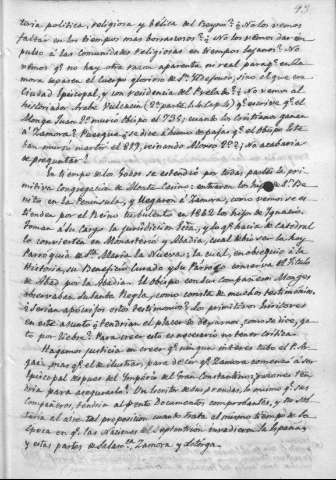 93
toria politica, religiosa y belica del Reyno? ¿No los vemos
faltar en los tiempos mas borrascosos? ¿No los vemos dar im
pulso á las comunidades religiosas en tiempos lejanos? No
vemos q.e no hay otra razon aparente ni real para q.e en Za
mora reposen el cuerpo glorioso de S.n Ildefonso, sino el que era
Ciudad Episcopal, y con residencia del Prelado? ¿No vemos al
historiador Arabe
Monge Juan 2.º murió Obispo el 735; cuando los cristianos ganar.n
á Zamora? Porque ¿se dice á humo de pajas q.e el Obispo Este
ban murió martir el 819, reinando Alonso 2.º? ¿No acabaria
de preguntar!
En tiempo de los Godos se estendió por todas partes la pri
mitiva congregacion de Monte Casino: entraron los hijos de S.n Be
nito en la Peninsula, y llegaron á Zamora, como vemos se es
tienden por el Reino turbulento en 1862 los hijos de Ignacio.
Toman á su cargo la jurisdicion
lo convierten en Monasterio y Abadia, cual es hoy la hoy
Parroquia de S.ta Maria la Nueva; la cual, en obsequio á la
Historia, su Beneficio Curado y su Parroco conserva el Titulo
de Abad por la Abadia. El Obispo con sus compañeros Monges
observaban su Santa Regla, como consta de muchos testimonios.
¿Serian apócrifos estos testimonios? Los primitivos Escritores
en este asunto ¿tendrian el placer de dejarnos, como se dice, ga
to por liebre? Para creer esto es necesario no tener critica.
Hagamos justicia en creer q.e ningun interés tubo el P. Ar
gaiz, mas q.e el de ilustrar, para decir q.e Zamora comenzó á ser
Episcopal despues del Imperio del Gran Constantino; y razones ten
dria para asegurarlo. Un Escritor de sus prendas, lo mismo q.e sus
compañeros, tendria al frente Documentos comprobantes, y no sol
taria al aire tal proposicion cuando trata al mismo tiempo de la
Epoca en q.e las Naciones del Septentrion invadieron la España,
y estas partes de Salam.ca, Zamora y Astorga.